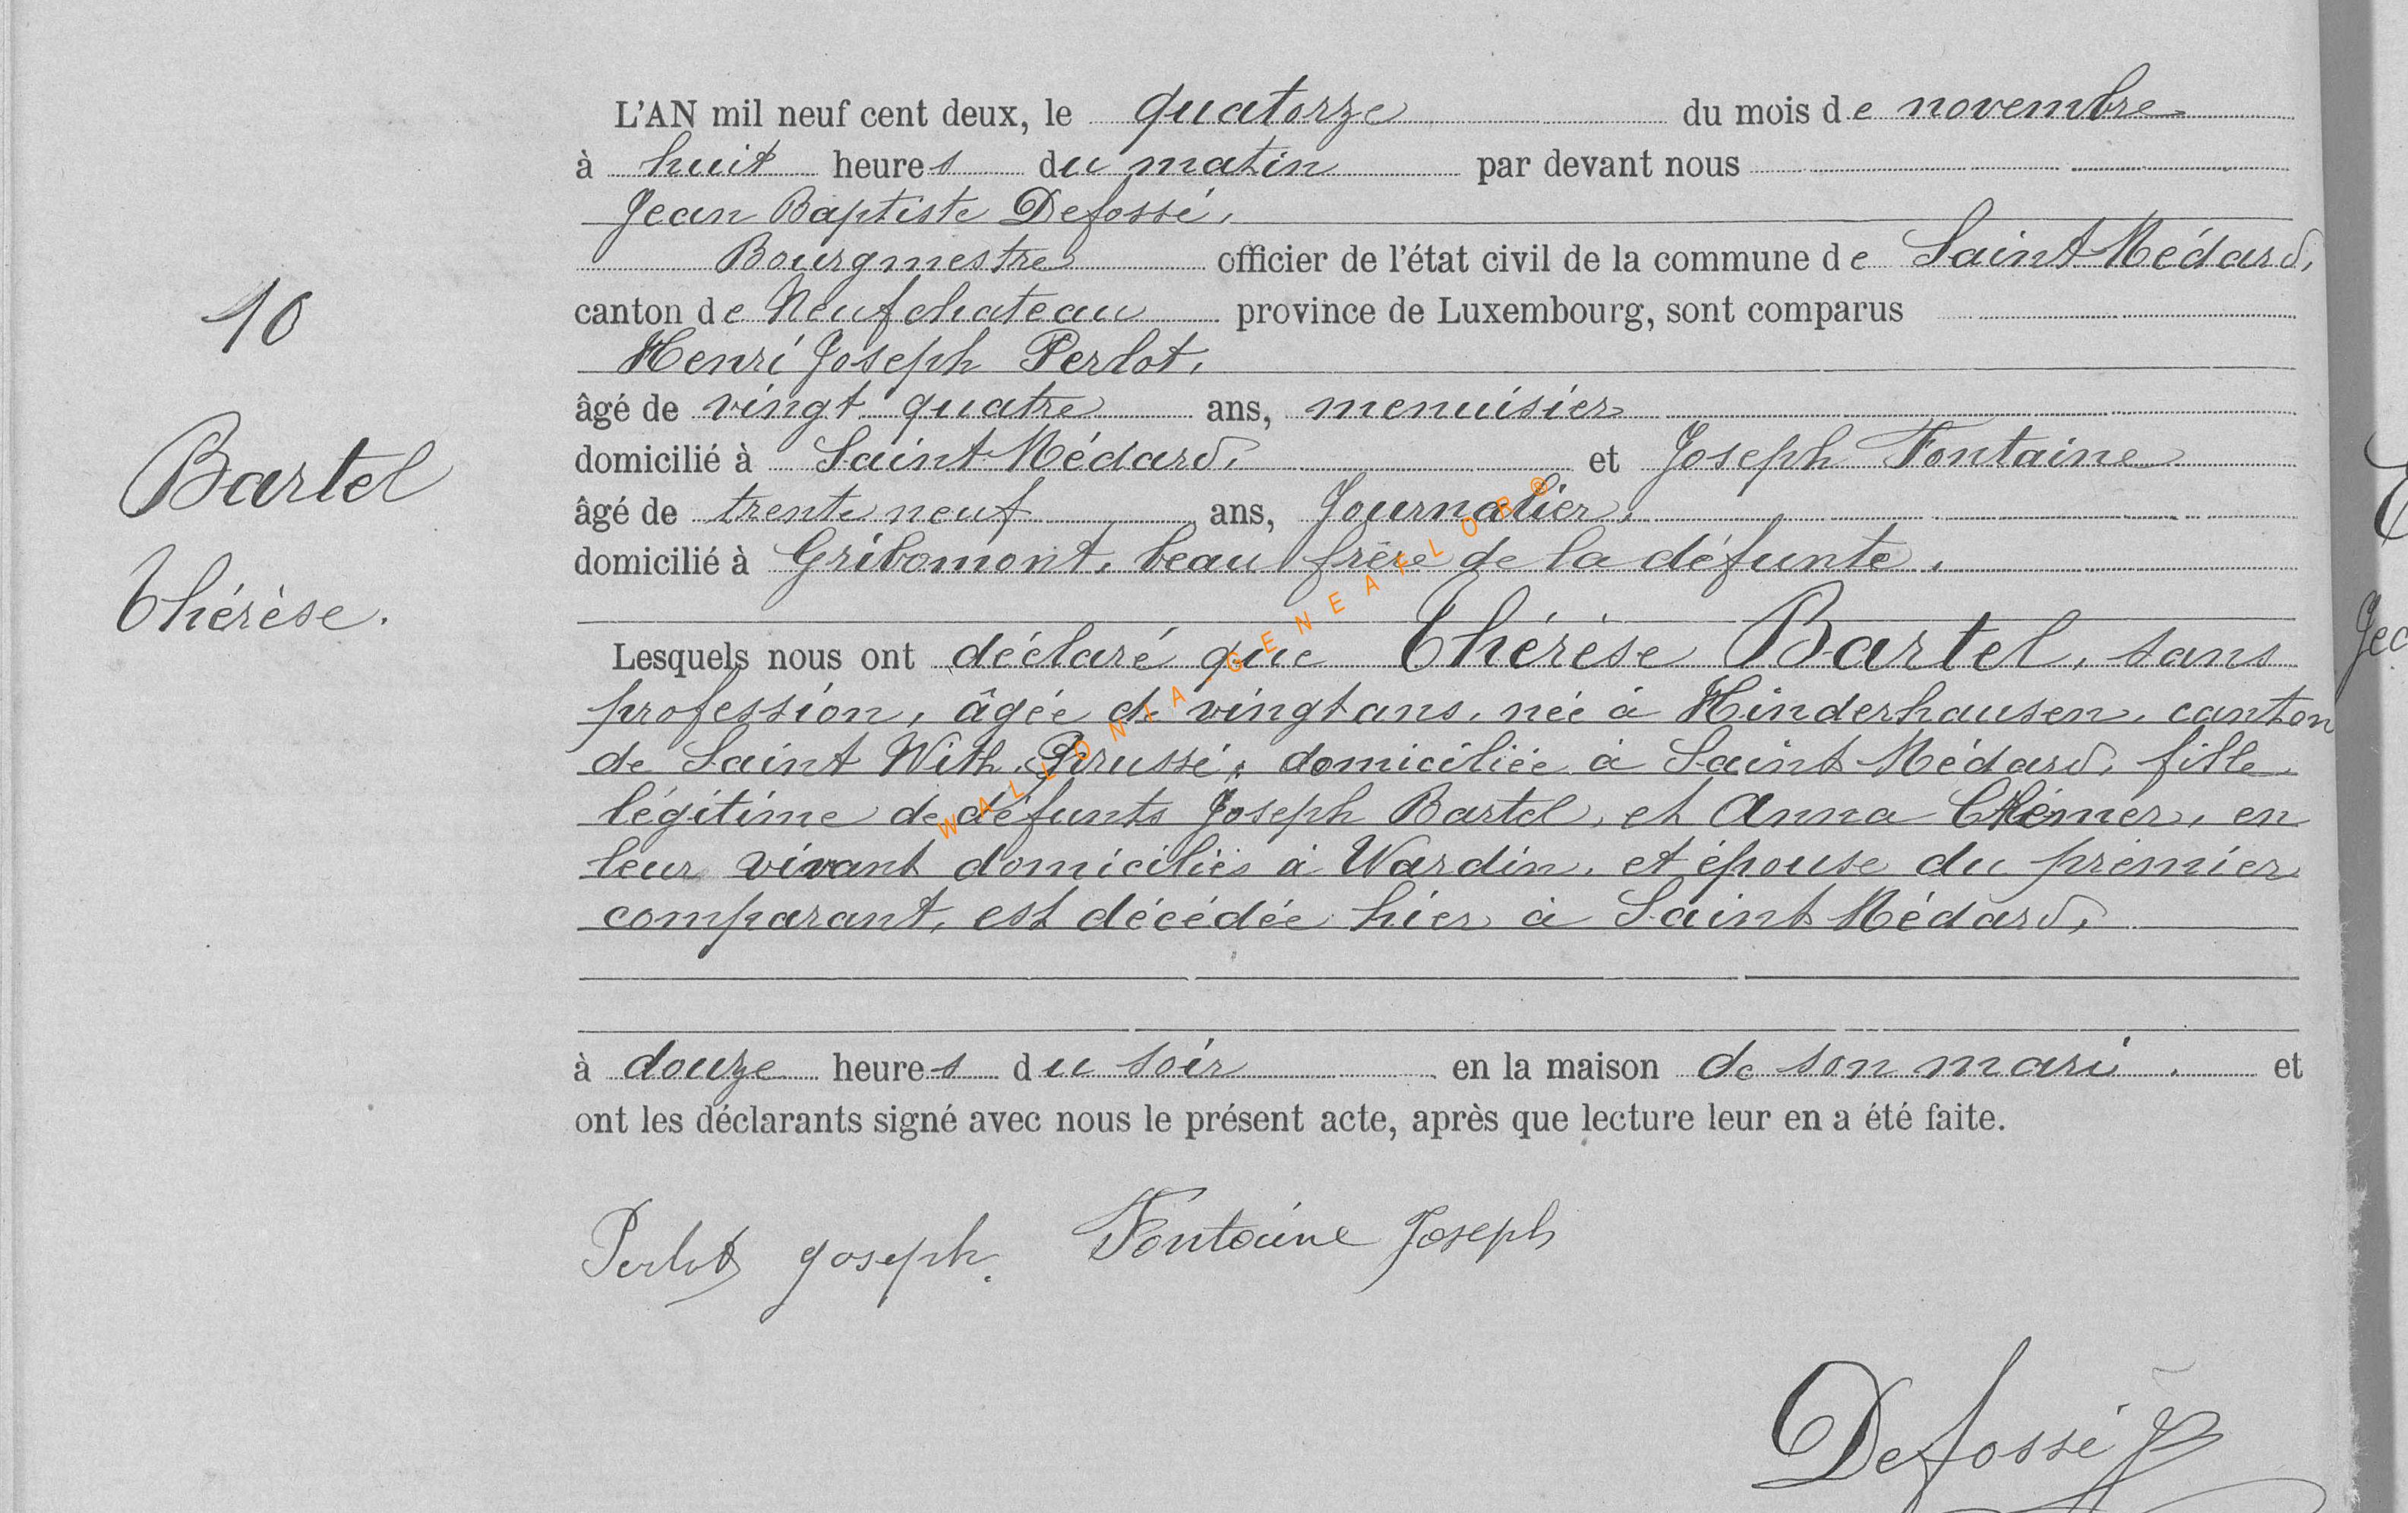 L'AN mil neuf cent deux, le quatorze du mois de novembre
à huit heures du matin par devant nous
Jean Baptiste Defossé,
Bourgmestre officier de l'état civil de la commune de Saint Médard,
canton de Neufchateau province de Luxembourg, sont comparus
Henri Joseph Perlot,
âgé de vingt quatre ans, menuisier
domicilié à Saint Médard, et Joseph Fontaine
âgé de trente neuf ans, Journalier,
domicilié à Gribomont, beau frère de la défunte,
Lesquels nous ont déclaré que Thérèse Bartel, sans
profession, âgée de vingt ans, née à Hinderhausen, canton
de Saint With, Prusse, domiciliée à Saint Médard, fille
légitime de défunts Joseph Bartel, et Anna, en
leur vivant domiciliés à Wardin, et épouse du premier
comparant, est décédée hier à Saint Médard,
à douze heures du soir en la maison de son mari, et
ont les déclarants signé avec nous le présent acte, après que lecture leur en a été faite.
Perlot Joseph. Fontaine Joseph
Defossé JB
10
Bartel
Thérèse.
WALLONIA-GENEAFLOR®